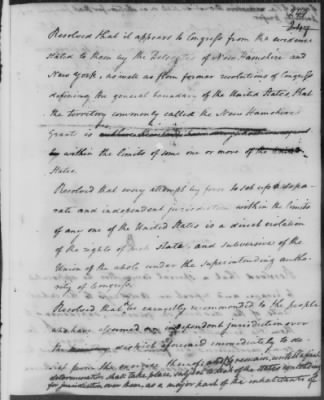 Resolved that it appears to Congress from the evidence
stated to them by the Delegates of New Hamshire and
New York, as well as from former resolutions of Congress
defining the general boundary of the United States, that
the territory commonly called the New Hamshire
Grants is
by within the limits of some one or more of the United
States.
Resolved that every attempt by force to set up a sepa-
rate and independent jurisdiction within the limits
of any one of the United States is a direct violation
of the rights of such State, and subversive of the
Union of the whole under the superintending autho-
rity of Congress.
Resolved that be earnestly recommended to the people
who have assumed an independent jurisdiction over
the district aforesaid immediately to de-
sist from the exercise thereof, and to remain, until a final
determination shall take place, subject to such of the states contending
for jurisdiction over them, as a major part of the inhabitants of